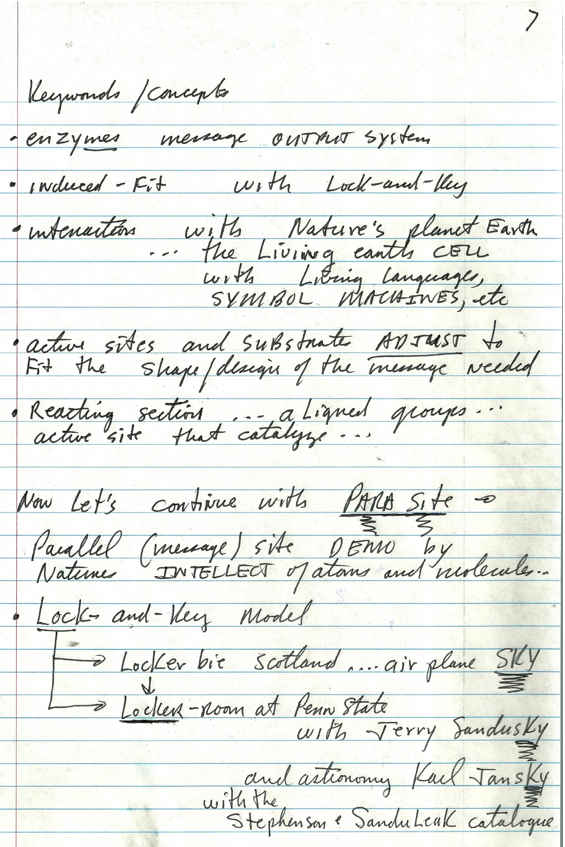 7
Keywords/concepts
• enzymes message OUTPUT System
• induced-Fit with Lock-and-Key
• interactions with Nature's planet Earth
... the Living earth CELL
with Living languages,
SYMBOL MACHINES, etc
• active sites and SUBSTRATE ADJUST to
Fit the shape/design of the message needed
• Reacting section ... aligned groups...
active site that catalyze ...
Now Let's continue with PARA Site →
Parallel (message) site DEMO by
Natures INTELLECT of atoms and molecules...
• Lock-and-Key Model
Locker bie Scotland .... air plane SKY
Locker-room at Penn State
with Jerry SanduSKY
and astronomy Karl JanSKY
with the
Stephenson & SanduLeaK catalogue